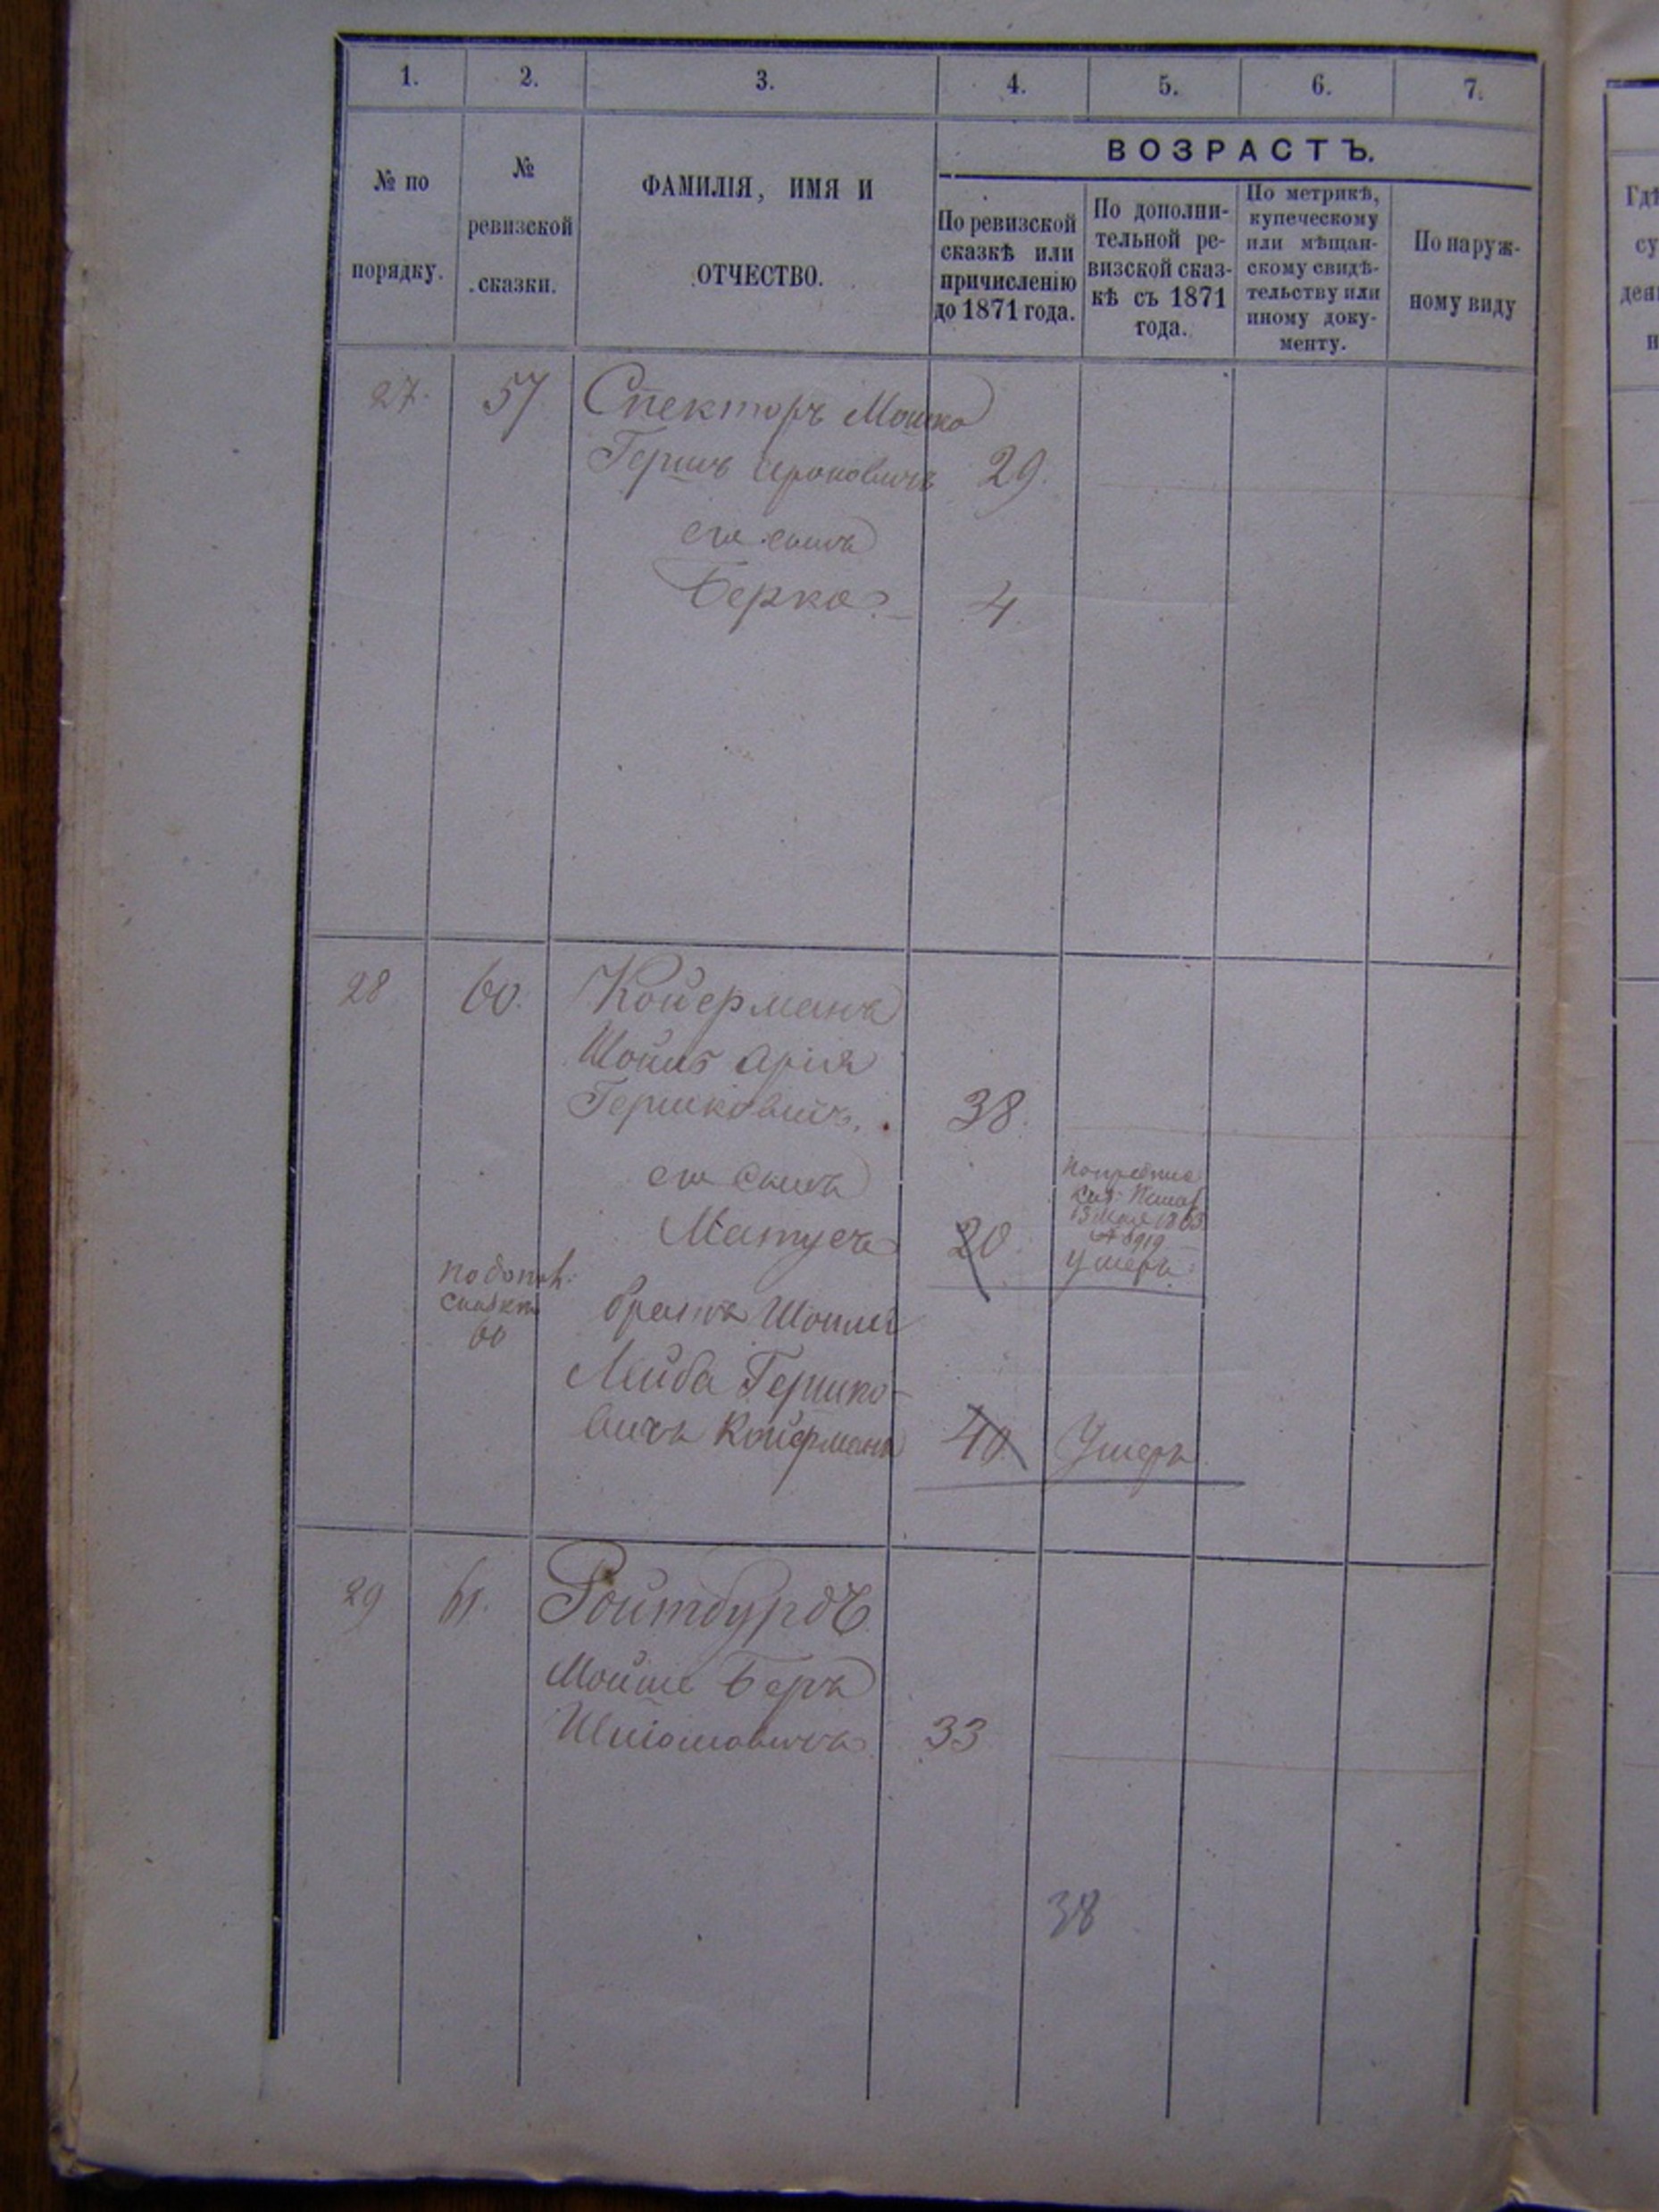 1. 2. 3. 4. 5. 6. 7.
№ по порядку.
№ ревизской сказки.
ФАМИЛІЯ, ИМЯ И
ОТЧЕСТВО.
ВОЗРАСТЪ.
По ревизской
сказкѣ или
причисленію
до 1871 года.
По дополни-
тельной ре-
визской сказ-
кѣ съ 1871
года.
По метрикѣ,
купеческому
или мѣщан-
скому свидѣ-
тельству или
иному доку-
менту.
По наруж-
ному виду
27. 57 Спекторъ Мошко
Гершъ Ароновичъ 29.
его сынъ
Берко 4.
28 60. Койферманъ
Арія
Гершковичъ. 38.
его сынъ
Матусъ 20
умеръ
60
братъ
Лейба Гершко-
вичъ 40. Умеръ
29 61. Ройтбурдъ
Мойше Беръ
Шліомовичъ 33
38
Гдѣ
су